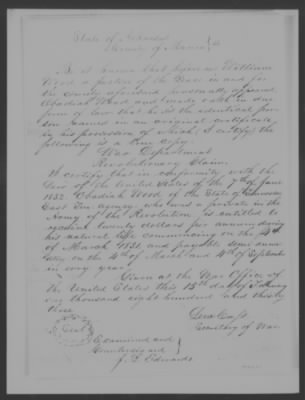 State of
County of
Be it known that before me William
Wood a Justice of the Peace in and for
the county aforesaid personally appeared
Obadiah Wood and made oath in due
form of law that he is the identical per
son named in an original certificate,
in his possession of which I certify the
following is a true copy.
War Department
Revolutionary Claim.
I certify that in conformity with the
law of the United States of the 7th of June
1832, Obadiah Wood of the State of Tennessee
East Ten agency who was a private in the
Army of the Revolution is entitled to
receive twenty dollars per annum during
his natural life commencing on the 4th
of March 1831 and payable semi annu
ally on the 4th of March and 4th of September
in every year.
Given at the War Office of
the United States this 15th day of
one thousand eight hundred and thirty
three
Lew Cass
Secretary of War
Seal
Examined and
Countersigned
J. L. Edwards